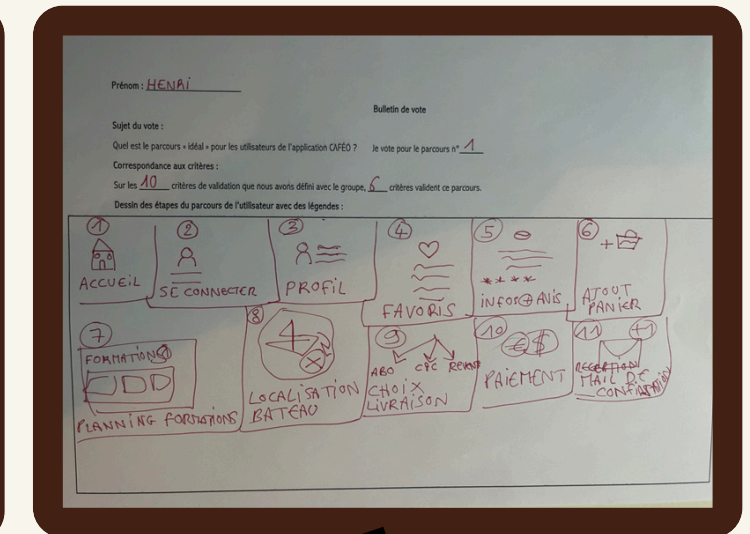 Prénom : HENRI
Bulletin de vote
Sujet du vote :
Quel est le parcours « idéal » pour les utilisateurs de l'application CAFÉO ? Je vote pour le parcours n° 1
Correspondance aux critères :
Sur les 10 critères de validation que nous avons défini avec le groupe, 6 critères valident ce parcours.
Dessin des étapes du parcours de l'utilisateur avec des légendes :
1
ACCUEIL
2
SE CONNECTER
3
PROFIL
4
FAVORIS
5
INFOS + AVIS
6
+
AJOUT
PANIER
7
FORMATIONS
PLANNING FORMATIONS
8
LOCALISATION
BATEAU
9
ABO
CHOIX
LIVRAISON
10
€ $
PAIEMENT
11
+1
RECEPTION
MAIL DE